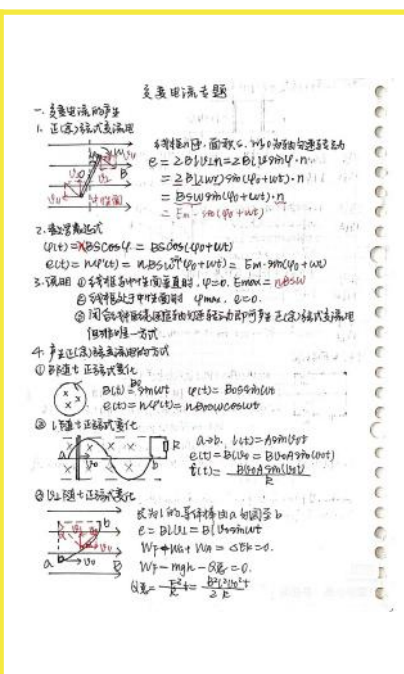 交变电流专题
一. 交变电流的产生
1. 正(余)弦式交流电
线框n匝, 面积S, 以ω为轴匀速转动
e = 2BLv⊥n = 2BLv sinφ·n
= 2BL(ωr) sin(φ0+ωt)·n
= BSω sin(φ0+ωt)·n
= Em·sin(φ0+ωt)
中性面
2. 数学表达式
φ(t) = nBScosφ = BScos(φ0+ωt)
e(t) = nφ'(t) = nBSω(φ0+ωt) = Em·sin(φ0+ωt)
3. 说明 ① 线框与中性面垂直时, φ=0. Emax = nBSω
② 线框处于中性面时 φmax, e=0.
③ 闭合线框
匀速转动即可产生正(余)弦式交流电
但非唯一方式
4. 产生正(余)弦交流电的方式
① B随t正弦式变化
B(t) = B0 sinωt φ(t) = B0S sinωt
e(t) = nφ'(t) = nB0Sωcosωt
② L随t正弦式变化
a→b. L(t) = Asin(v0t)
e(t) = BLv0 = Bv0Asin(v0t)
i(t) = Bv0Asin(v0t) / R
a v0 b R
③ v⊥随t正弦式变化
长为L的导体棒由a匀圆至b
e = BLv⊥ = BLv0sinωt
WF + WG + WA = ΔEk = 0.
WF − mgh − Q总 = 0.
Q总 = E²/R t = B²L²v0²t / 2R
a b v0 B